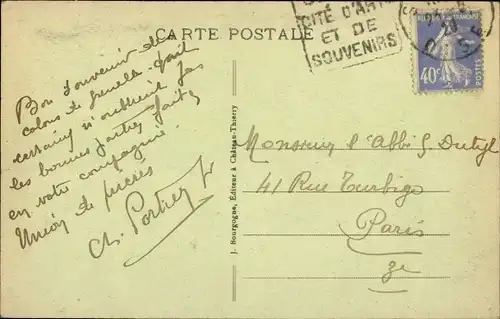 CARTE POSTALE
CITÉ D'ART
ET DE
SOUVENIRS
POSTES
40c
Bon souvenir des
colons de dont
certains n'oublient pas
les bonnes parties faites
en votre compagnie.
Union de
Ch. Portier
J. Bourgogne, Editeur à Château-Thierry
Monsieur l'Abbé G Dutyl
41 Rue Turbigo
Paris
3e